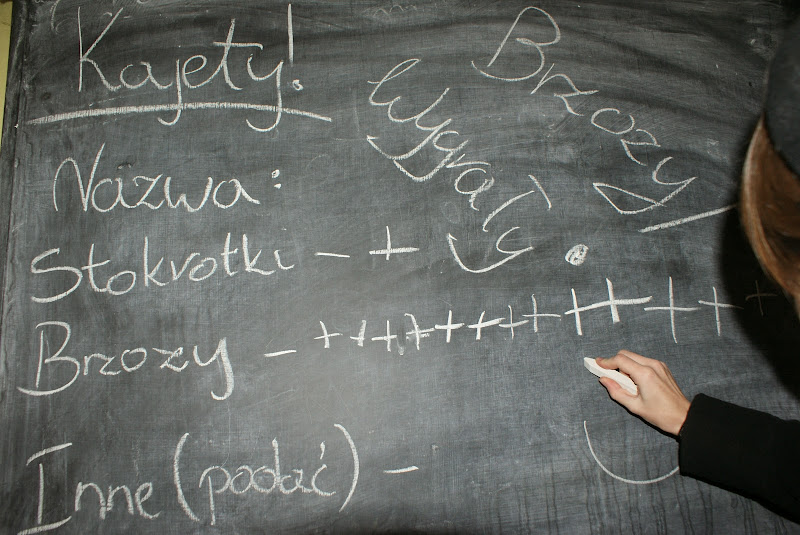 Kajety!
Nazwa:
Stokrotki – +
Brzozy – + + + + + + + + + + + + +
Inne (podać) –
Brzozy
Wygrały!